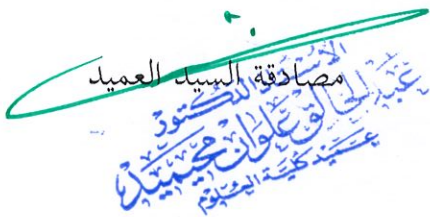 مصادقة السيد العميد
الأستاذ الدكتور
عبد الخالق علوان محيميد
عميد كلية العلوم